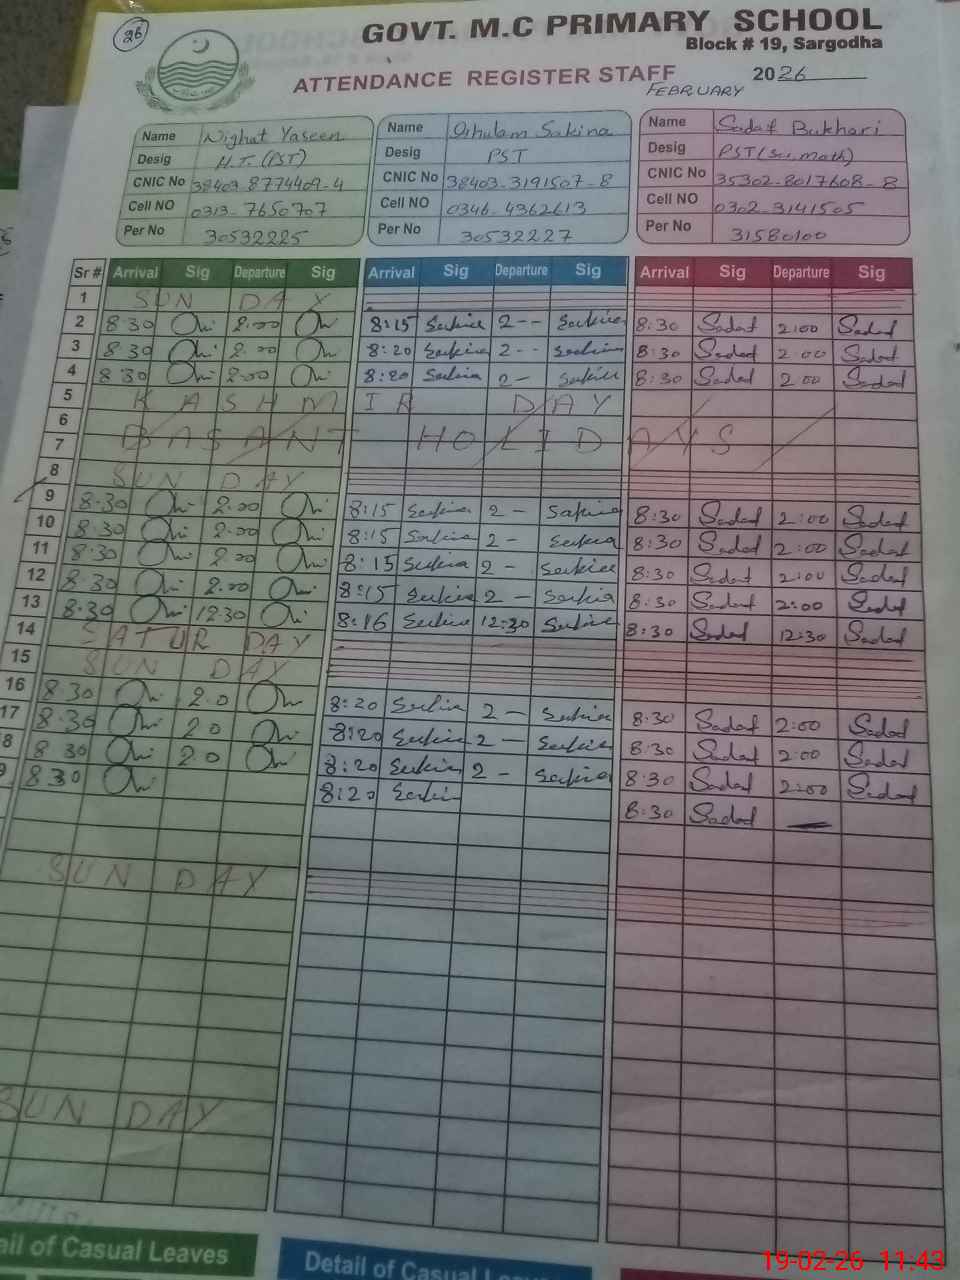 26
GOVT. M.C PRIMARY SCHOOL
Block # 19, Sargodha
ATTENDANCE REGISTER STAFF 2026
FEBRUARY
Name Nighat Yaseen Name Ghulam Sakina Name Sadaf Bukhari
Desig H.T. (PST) Desig PST Desig PST (Sci, math)
CNIC No 38403-8774409-4 CNIC No 38403-3191507-8 CNIC No 35302-8017608-8
Cell NO 0313-7650707 Cell NO 0346-4362613 Cell NO 0302-3141505
Per No 30532225 Per No 30532227 Per No 31580100
Sr # Arrival Sig Departure Sig Arrival Sig Departure Sig Arrival Sig Departure Sig
1 SUN DAY
2 8:30 2.00 8:15 Sakina 2-- Sakina 8:30 Sadaf 2:00 Sadaf
3 8:30 2.00 8:20 Sakina 2-- Sakina 8:30 Sadaf 2:00 Sadaf
4 8:30 2.00 8:20 Sakina 2- Sakina 8:30 Sadaf 2:00 Sadaf
5 KASHMIR DAY
6
7 BASANT HOLIDAYS
8 SUN DAY
9 8:30 2.00 8:15 Sakina 2- Sakina 8:30 Sadaf 2:00 Sadaf
10 8:30 2.00 8:15 Sakina 2- Sakina 8:30 Sadaf 2:00 Sadaf
11 8:30 2.00 8:15 Sakina 2- Sakina 8:30 Sadaf 2:00 Sadaf
12 8:30 2.00 8:15 Sakina 2- Sakina 8:30 Sadaf 2:00 Sadaf
13 8:30 12:30 8:16 Sakina 12:30 Sakina 8:30 Sadaf 12:30 Sadaf
14 SATUR DAY
15 SUN DAY
16 8:30 2.0 8:20 Sakina 2- Sakina 8:30 Sadaf 2:00 Sadaf
17 8:30 2.0 8:20 Sakina 2- Sakina 8:30 Sadaf 2:00 Sadaf
8 8:30 2.0 8:20 Sakina 2- Sakina 8:30 Sadaf 2:00 Sadaf
9 8:30 8:20 Sakina 8:30 Sadaf
SUN DAY
SUN DAY
ail of Casual Leaves Detail of Casual Leaves
19-02-26 11:43